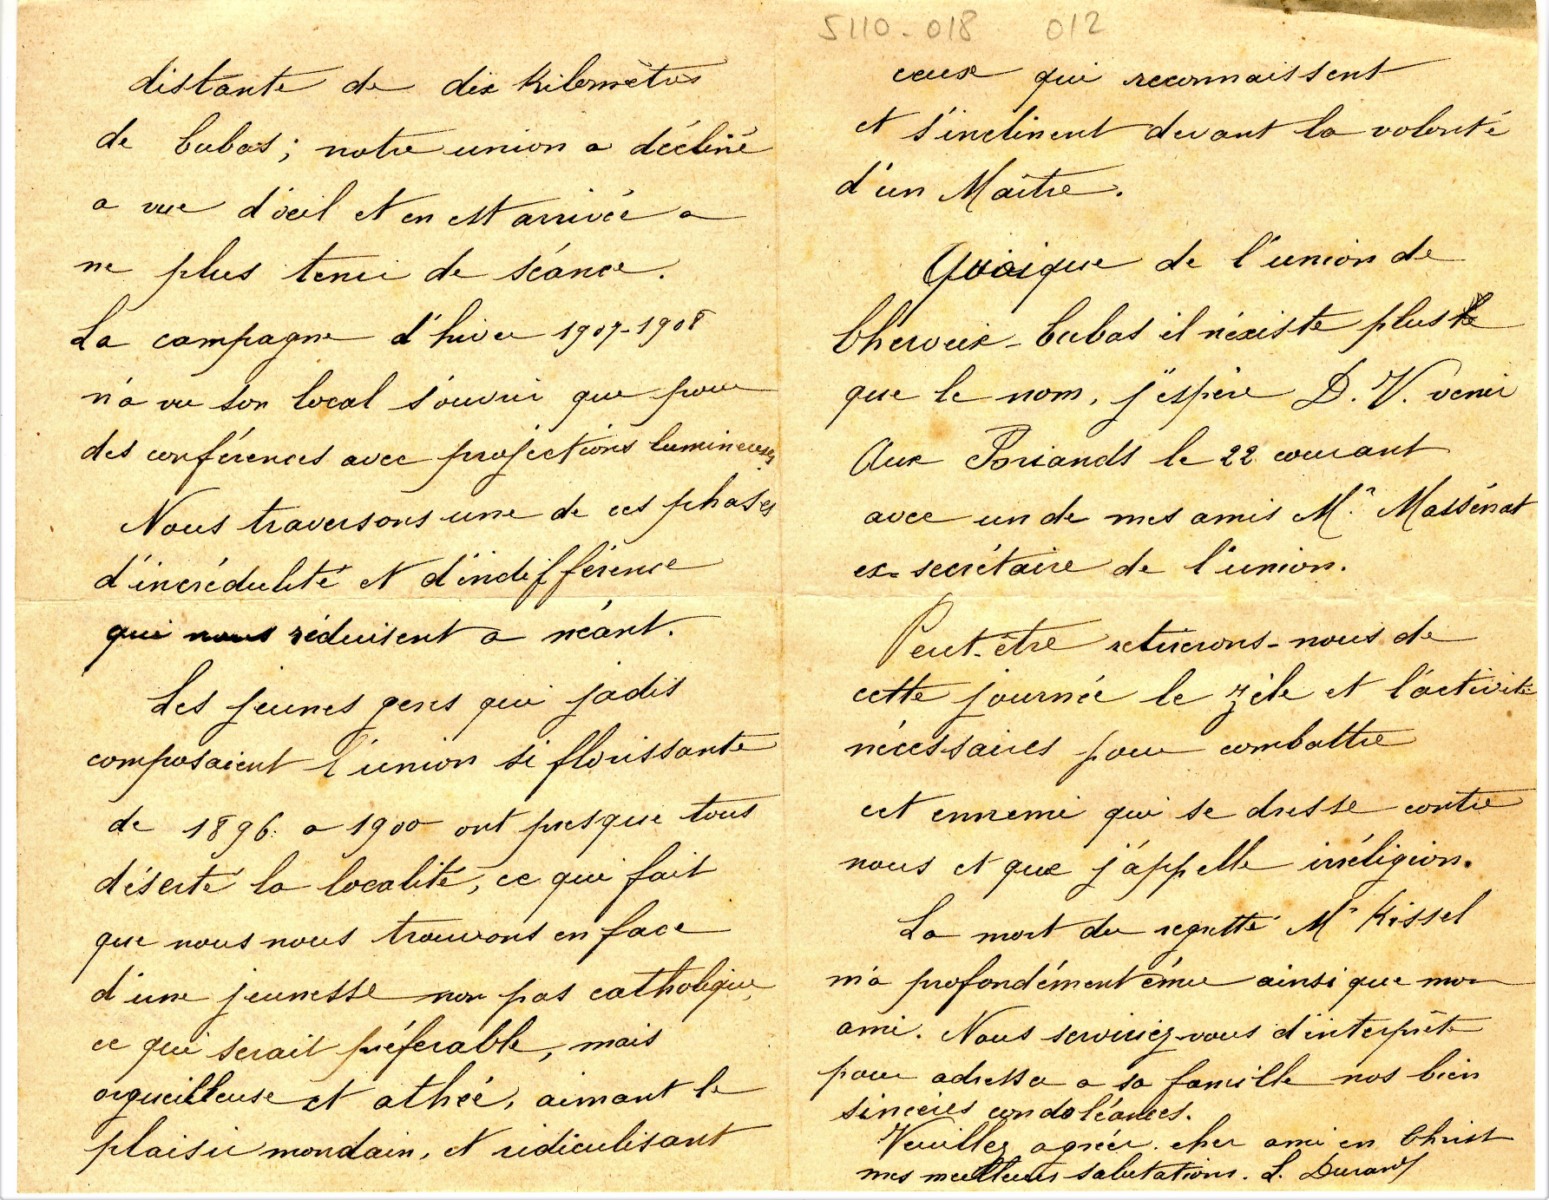 5110-018 012
distante de dix kilomètres
de Cubas; notre union a décliné
a vue d'oeil et en est arrivée a
ne plus tenir de séance.
La campagne d'hiver 1907-1908
n'a vu son local s'ouvrir que pour
des conférences avec projections lumineuses
Nous traversons une de ces phases
d'incrédulité et d'indifférence
qui nous réduisent a néant.
Les jeunes gens qui jadis
composaient l'union si florissante
de 1896 a 1900 ont presque tous
déserté la localité, ce qui fait
que nous nous trouvons en face
d'une jeunesse non pas catholique,
ce qui serait préferable, mais
orgueilleuse et athée, aimant le
plaisir mondain, et ridiculisant
ceux qui reconnaissent
et s'inclinent devant la volonté
d'un Maître.
Quoique de l'union de
Cherveix-Cubas il n'éxiste plus
que le nom, j'espère D.V. venir
Aux Poriands le 22 courant
avec un de mes amis Mr. Massénat
ex-secrétaire de l'union.
Peut-être retirerons-nous de
cette journée le zèle et l'activité
nécessaires pour combattre
cet ennemi qui se dresse contre
nous et que j'appelle irréligion.
La mort du regretté Mr Kissel
m'a profondément émue ainsi que mon
ami. Nous serviriez-vous d'interprète
pour adresser a sa famille nos bien
sincères condoléances.
Veuillez agréer cher ami en Christ
mes meilleures salutations. L. Durand